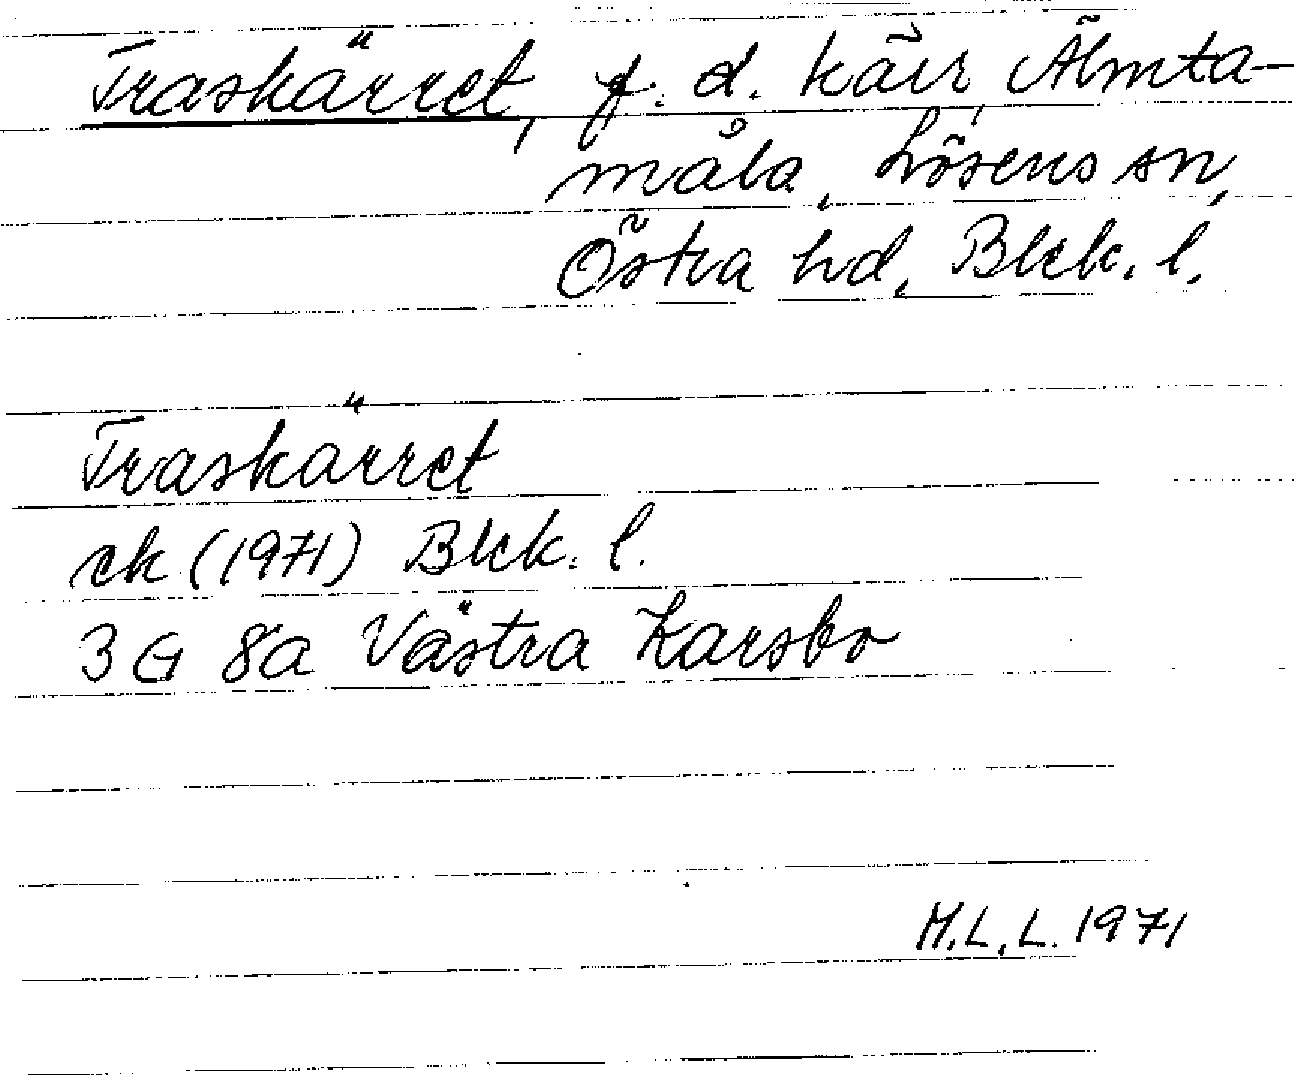 Traskärret, f. d. kärr, Älmta-
måla, Lösens sn,
Östra hd, Blek. l.
Traskärret
ek (1971) Blek. l.
3 G 8a Västra Karsbo
M.L.L. 1971